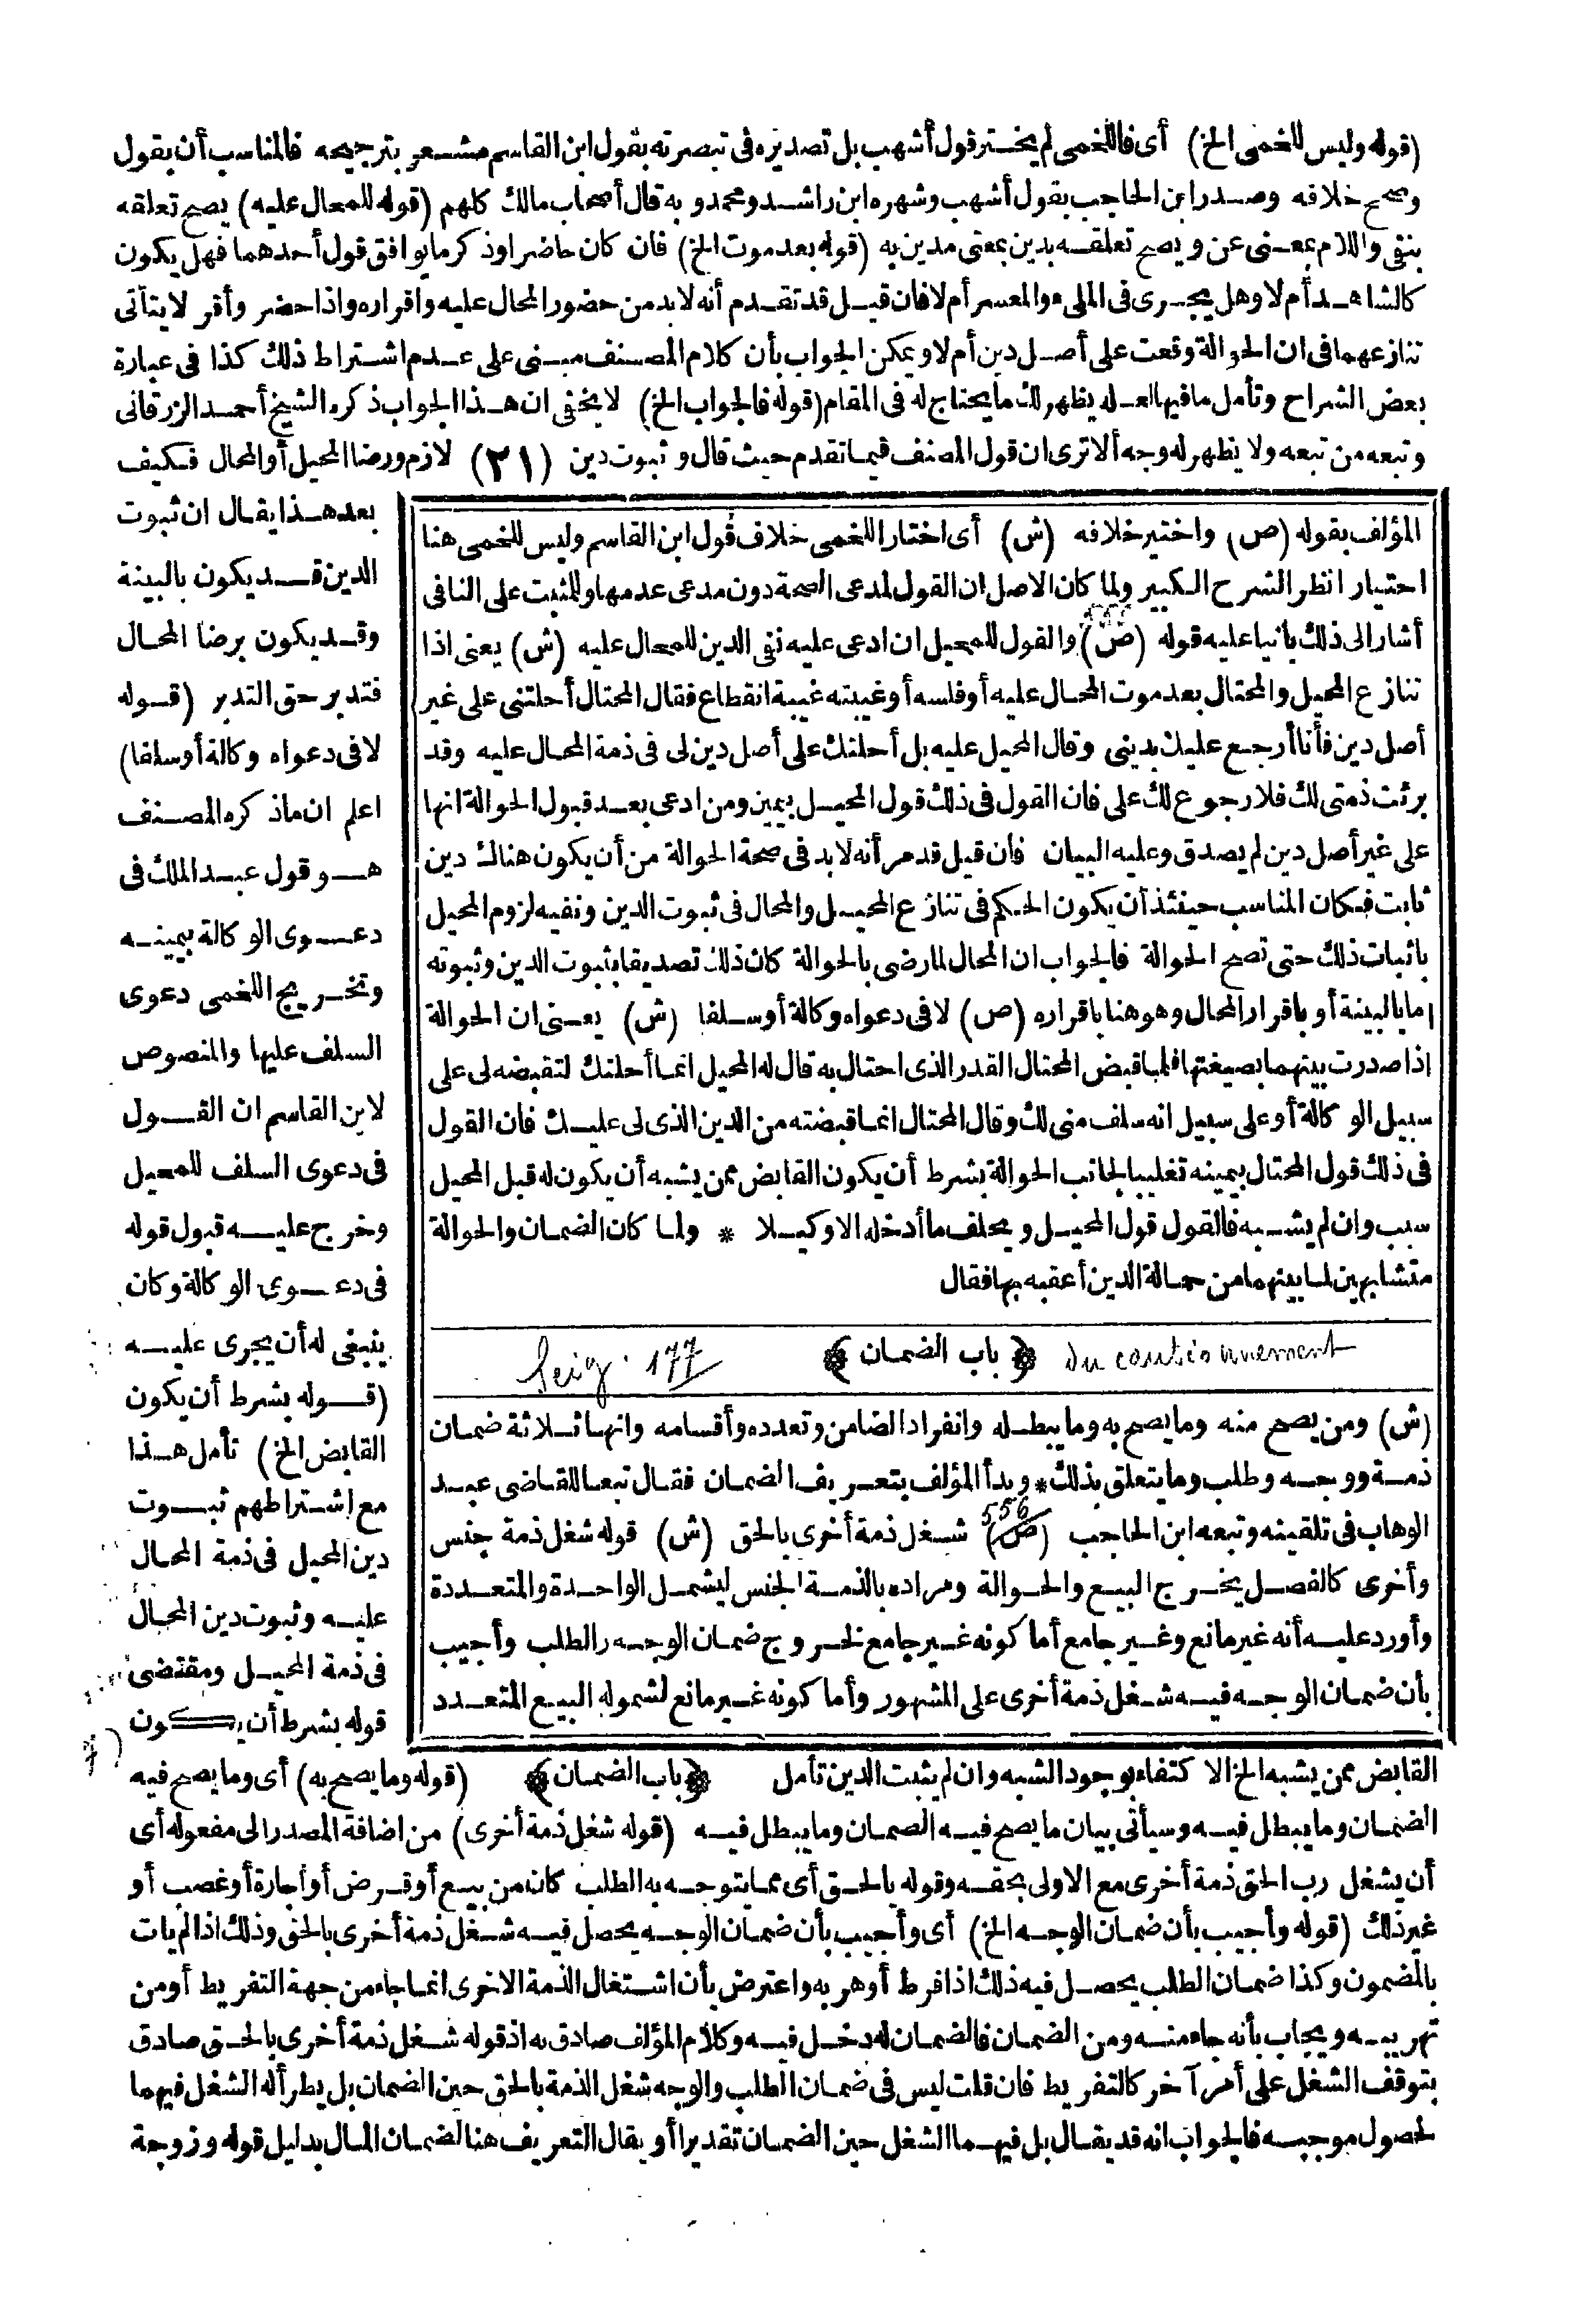 (قوله وليس للخمى الخ) أى فاللخمى لم يختر قول أشهب بل تصديره فى تبصرته بقول ابن القاسم مشعر بترجيحه فالمناسب أن يقول
وصحح خلافه وصدر ابن الحاجب بقول أشهب وشهره ابن راشد ومحمد وبه قال أصحاب مالك كلهم (قوله للمحال عليه) يصح تعلقه
بنفى واللام بمعنى عن ويصح تعلقه بدين بمعنى مدين به (قوله بعد موت الخ) فان كان حاضرا وذكر مايوافق قول أحدهما فهل يكون
كالشاهد أم لا وهل يجرى فى الملىء والمعسر أم لا فان قيل قد تقدم أنه لا بد من حضور المحال عليه واقراره واذا حضر وأقر لا يتأتى
تنازعهما فى ان الحوالة وقعت على أصل دين أم لا ويمكن الجواب بأن كلام المصنف مبنى على عدم اشتراط ذلك كذا فى عبارة
بعض الشراح وتأمل مافيها لعله يظهر لك ما يحتاج له فى المقام (قوله فالجواب الخ) لا يخفى ان هذا الجواب ذكره الشيخ أحمد الزرقانى
وتبعه من تبعه ولا يظهر له وجه ألا ترى ان قول المصنف فيما تقدم حيث قال وثبوت دين (٢١) لازم ورضا المحيل أو المحال فكيف
بعد هذا يقال ان ثبوت
الدين قد يكون بالبينة
وقد يكون برضا المحال
فتدبر حق التدبر (قوله
لا فى دعواه وكالة أو سلفا)
اعلم ان ماذكره المصنف
هو قول عبد الملك فى
دعوى الوكالة بيمينه
وتخريج اللخمى دعوى
السلف عليها والمنصوص
لابن القاسم ان القول
فى دعوى السلف للمحيل
وخرج عليه قبول قوله
فى دعوى الوكالة وكان
ينبغى له أن يجرى عليه
(قوله بشرط أن يكون
القابض الخ) تأمل هذا
مع اشتراطهم ثبوت
دين المحيل فى ذمة المحال
عليه وثبوت دين المحال
فى ذمة المحيل ومقتضى
قوله بشرط أن يكون
المؤلف بقوله (ص) واختير خلافه (ش) أى اختار اللخمى خلاف قول ابن القاسم وليس للخمى هنا
اختيار انظر الشرح الكبير ولما كان الاصل ان القول لمدعى الصحة دون مدعى عدمها وللمثبت على النافى
أشار الى ذلك بانيا عليه قوله (ص) والقول للمحيل ان ادعى عليه نفى الدين للمحال عليه (ش) يعنى اذا
تنازع المحيل والمحتال بعد موت المحال عليه أو فلسه أو غيبته غيبة انقطاع فقال المحتال أحلتنى على غير
أصل دين فأنا أرجع عليك بدينى وقال المحيل عليه بل أحلتك على أصل دين لى فى ذمة المحال عليه وقد
برئت ذمتى لك فلا رجوع لك على فان القول فى ذلك قول المحيل بيمين ومن ادعى بعد قبول الحوالة انها
على غير أصل دين لم يصدق وعليه البيان فان قيل قد مر أنه لا بد فى صحة الحوالة من أن يكون هناك دين
ثابت فكان المناسب حينئذ أن يكون الحكم فى تنازع المحيل والمحال فى ثبوت الدين ونفيه لزوم المحيل
باثبات ذلك حتى تصح الحوالة فالجواب ان المحال لما رضى بالحوالة كان ذلك تصديقا بثبوت الدين وثبوته
اما بالبينة أو باقرار المحال وهو هنا باقراره (ص) لا فى دعواه وكالة أو سلفا (ش) يعنى ان الحوالة
اذا صدرت بينهما بصيغتها فلما قبض المحتال القدر الذى احتال به قال له المحيل انما أحلتك لتقبضه لى على
سبيل الوكالة أو على سبيل انه سلف منى لك وقال المحتال انما قبضته من الدين الذى لى عليك فان القول
فى ذلك قول المحتال بيمينه تغليبا لجانب الحوالة بشرط أن يكون القابض ممن يشبه أن يكون له قبل المحيل
سبب وان لم يشبه فالقول قول المحيل ويحلف ما أدخله الا وكيلا * ولما كان الضمان والحوالة
متشابهين لما بينهما من حمالة الدين أعقبه بها فقال
Seig. 177 ﴿باب الضمان﴾ du cautionnement
(ش) ومن يصح منه وما يصح به وما يبطله وانفراد الضامن وتعدده وأقسامه وانها ثلاثة ضمان
ذمة ووجه وطلب وما يتعلق بذلك * وبدأ المؤلف بتعريف الضمان فقال تبعا للقاضى عبد
556
الوهاب فى تلقينه وتبعه ابن الحاجب (ص) شغل ذمة أخرى بالحق (ش) قوله شغل ذمة جنس
وأخرى كالفصل يخرج البيع والحوالة ومراده بالذمة الجنس ليشمل الواحدة والمتعددة
وأورد عليه أنه غير مانع وغير جامع أما كونه غير جامع لخروج ضمان الوجه والطلب وأجيب
بأن ضمان الوجه فيه شغل ذمة أخرى على المشهور وأما كونه غير مانع لشموله البيع المتعدد
القابض ممن يشبه الخ الاكتفاء بوجود الشبه وان لم يثبت الدين تأمل ﴿باب الضمان﴾ (قوله وما يصح به) أى وما يصح فيه
الضمان وما يبطل فيه وسيأتى بيان ما يصح فيه الضمان وما يبطل فيه (قوله شغل ذمة أخرى) من اضافة المصدر الى مفعوله أى
أن يشغل رب الحق ذمة أخرى مع الاولى بحقه وقوله بالحق أى مما يتوجه به الطلب كان من بيع أو قرض أو اجارة أو غصب أو
غير ذلك (قوله وأجيب بأن ضمان الوجه الخ) أى وأجيب بأن ضمان الوجه يحصل فيه شغل ذمة أخرى بالحق وذلك اذا لم يات
بالمضمون وكذا ضمان الطلب يحصل فيه ذلك اذا فرط أو هربه واعترض بأن اشتغال الذمة الاخرى انما جاء من جهة التفريط أو من
تهريبه ويجاب بأنه جاء منه ومن الضمان فالضمان له دخل فيه وكلام المؤلف صادق به اذ قوله شغل ذمة أخرى بالحق صادق
بتوقف الشغل على أمر آخر كالتفريط فان قلت ليس فى ضمان الطلب والوجه شغل الذمة بالحق حين الضمان بل يطرأ له الشغل فيهما
لحصول موجبه فالجواب انه قد يقال بل فيهما الشغل حين الضمان تقديرا أو يقال التعريف هنا لضمان المال بدليل قوله وزوجة